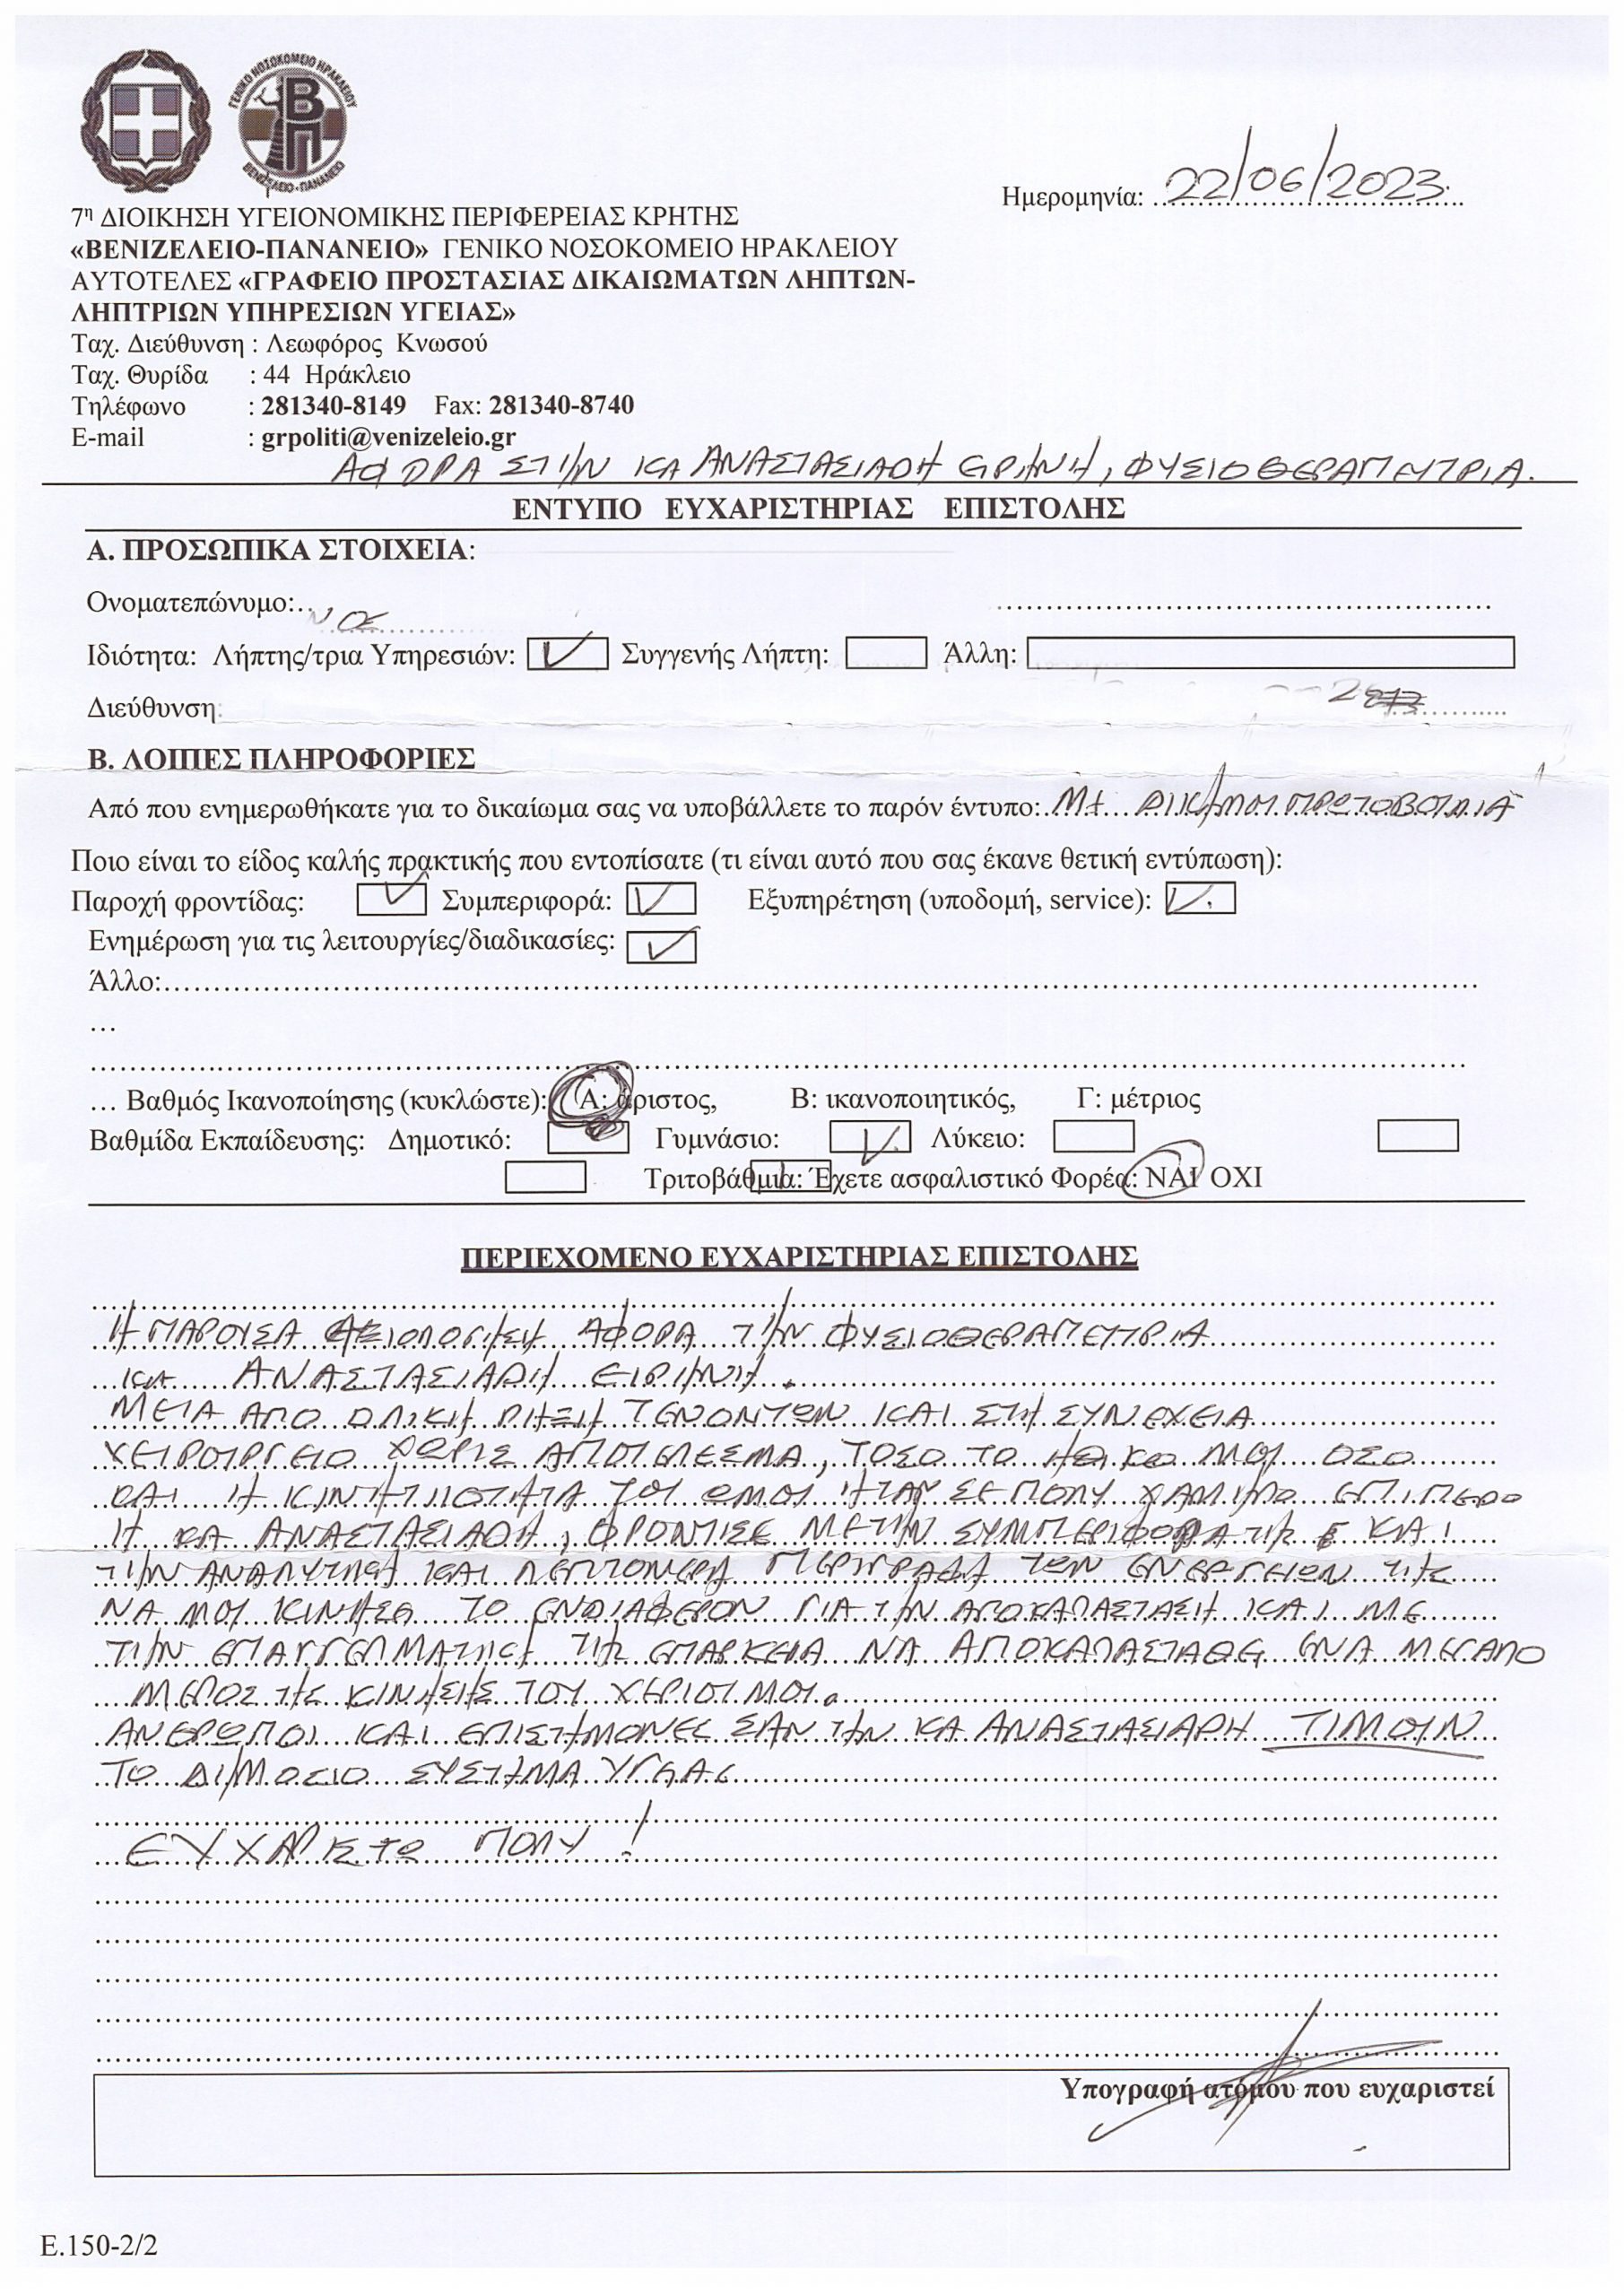 ΓΕΝΙΚΟ ΝΟΣΟΚΟΜΕΙΟ ΗΡΑΚΛΕΙΟΥ
ΒΠ
ΒΕΝΙΖΕΛΕΙΟ-ΠΑΝΑΝΕΙΟ
Ημερομηνία: 22/06/2023
7η ΔΙΟΙΚΗΣΗ ΥΓΕΙΟΝΟΜΙΚΗΣ ΠΕΡΙΦΕΡΕΙΑΣ ΚΡΗΤΗΣ
«ΒΕΝΙΖΕΛΕΙΟ-ΠΑΝΑΝΕΙΟ» ΓΕΝΙΚΟ ΝΟΣΟΚΟΜΕΙΟ ΗΡΑΚΛΕΙΟΥ
ΑΥΤΟΤΕΛΕΣ «ΓΡΑΦΕΙΟ ΠΡΟΣΤΑΣΙΑΣ ΔΙΚΑΙΩΜΑΤΩΝ ΛΗΠΤΩΝ-
ΛΗΠΤΡΙΩΝ ΥΠΗΡΕΣΙΩΝ ΥΓΕΙΑΣ»
Ταχ. Διεύθυνση : Λεωφόρος Κνωσού
Ταχ. Θυρίδα : 44 Ηράκλειο
Τηλέφωνο : 281340-8149 Fax: 281340-8740
E-mail : grpoliti@venizeleio.gr
ΑΦΟΡΑ ΣΤΗΝ ΚΑ ΑΝΑΣΤΑΣΙΑΔΗ ΕΙΡΗΝΗ, ΦΥΣΙΟΘΕΡΑΠΕΥΤΡΙΑ.
ΕΝΤΥΠΟ ΕΥΧΑΡΙΣΤΗΡΙΑΣ ΕΠΙΣΤΟΛΗΣ
Α. ΠΡΟΣΩΠΙΚΑ ΣΤΟΙΧΕΙΑ:
Ονοματεπώνυμο:
Ιδιότητα: Λήπτης/τρια Υπηρεσιών: Συγγενής Λήπτη: Άλλη:
Διεύθυνση:
Β. ΛΟΙΠΕΣ ΠΛΗΡΟΦΟΡΙΕΣ
Από που ενημερωθήκατε για το δικαίωμα σας να υποβάλλετε το παρόν έντυπο: ΜΕ ΔΙΚΗ ΜΟΥ ΠΡΩΤΟΒΟΥΛΙΑ
Ποιο είναι το είδος καλής πρακτικής που εντοπίσατε (τι είναι αυτό που σας έκανε θετική εντύπωση):
Παροχή φροντίδας: Συμπεριφορά: Εξυπηρέτηση (υποδομή, service):
Ενημέρωση για τις λειτουργίες/διαδικασίες:
Άλλο:
…
… Βαθμός Ικανοποίησης (κυκλώστε): Α: άριστος, Β: ικανοποιητικός, Γ: μέτριος
Βαθμίδα Εκπαίδευσης: Δημοτικό: Γυμνάσιο: Λύκειο:
Τριτοβάθμια: Έχετε ασφαλιστικό Φορέα: ΝΑΙ ΟΧΙ
ΠΕΡΙΕΧΟΜΕΝΟ ΕΥΧΑΡΙΣΤΗΡΙΑΣ ΕΠΙΣΤΟΛΗΣ
Η ΠΑΡΟΥΣΑ ΑΞΙΟΛΟΓΗΣΗ ΑΦΟΡΑ ΤΗΝ ΦΥΣΙΟΘΕΡΑΠΕΥΤΡΙΑ
ΚΑ ΑΝΑΣΤΑΣΙΑΔΗ ΕΙΡΗΝΗ.
ΜΕΤΑ ΑΠΟ ΟΛΙΚΗ ΡΗΞΗ ΤΕΝΟΝΤΩΝ ΚΑΙ ΣΤΗ ΣΥΝΕΧΕΙΑ
ΧΕΙΡΟΥΡΓΕΙΟ ΧΩΡΙΣ ΑΠΟΤΕΛΕΣΜΑ, ΤΟΣΟ ΤΟ ΗΘΙΚΟ ΜΟΥ ΟΣΟ
ΚΑΙ Η ΚΙΝΗΤΙΚΟΤΗΤΑ ΤΟΥ ΩΜΟΥ ΗΤΑΝ ΣΕ ΠΟΛΥ ΧΑΜΗΛΟ ΕΠΙΠΕΔΟ
Η ΚΑ ΑΝΑΣΤΑΣΙΑΔΗ, ΦΡΟΝΤΙΣΕ ΜΕ ΤΗΝ ΣΥΜΠΕΡΙΦΟΡΑ ΤΗΣ ΚΑΙ
ΤΗΝ ΑΝΑΛΥΤΙΚΗ ΚΑΙ ΛΕΠΤΟΜΕΡΗ ΠΕΡΙΓΡΑΦΗ ΤΩΝ ΕΝΕΡΓΕΙΩΝ ΤΗΣ
ΝΑ ΜΟΥ ΚΙΝΗΣΕΙ ΤΟ ΕΝΔΙΑΦΕΡΟΝ ΓΙΑ ΤΗΝ ΑΠΟΚΑΤΑΣΤΑΣΗ ΚΑΙ ΜΕ
ΤΗΝ ΕΠΑΓΓΕΛΜΑΤΙΚΗ ΤΗΣ ΕΠΑΡΚΕΙΑ ΝΑ ΑΠΟΚΑΤΑΣΤΑΘΕΙ ΕΝΑ ΜΕΓΑΛΟ
ΜΕΡΟΣ ΤΗΣ ΚΙΝΗΣΗΣ ΤΟΥ ΧΕΡΙΟΥ ΜΟΥ.
ΑΝΘΡΩΠΟΙ ΚΑΙ ΕΠΙΣΤΗΜΟΝΕΣ ΣΑΝ ΤΗΝ ΚΑ ΑΝΑΣΤΑΣΙΑΔΗ ΤΙΜΟΥΝ
ΤΟ ΔΗΜΟΣΙΟ ΣΥΣΤΗΜΑ ΥΓΕΙΑΣ
ΕΥΧΑΡΙΣΤΩ ΠΟΛΥ!
Υπογραφή ατόμου που ευχαριστεί
Ε.150-2/2